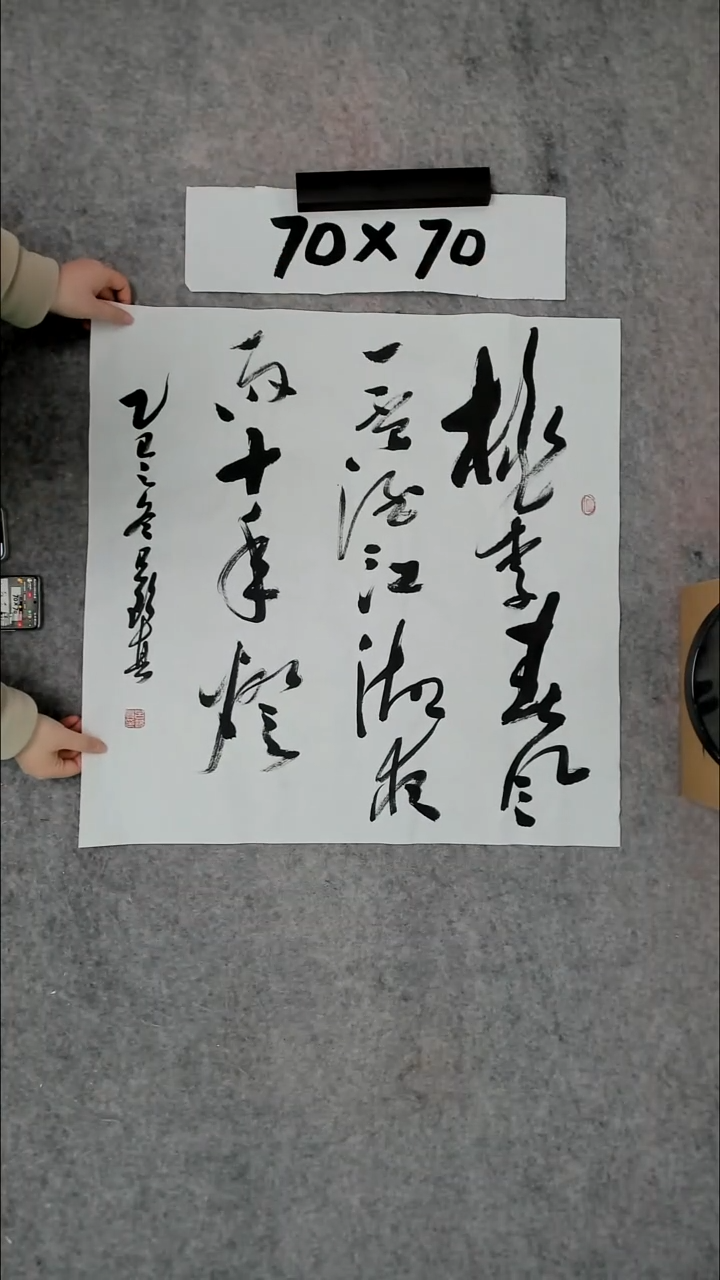 70×70
桃李春風
一盃酒江湖夜
雨十年燈
乙巳之冬